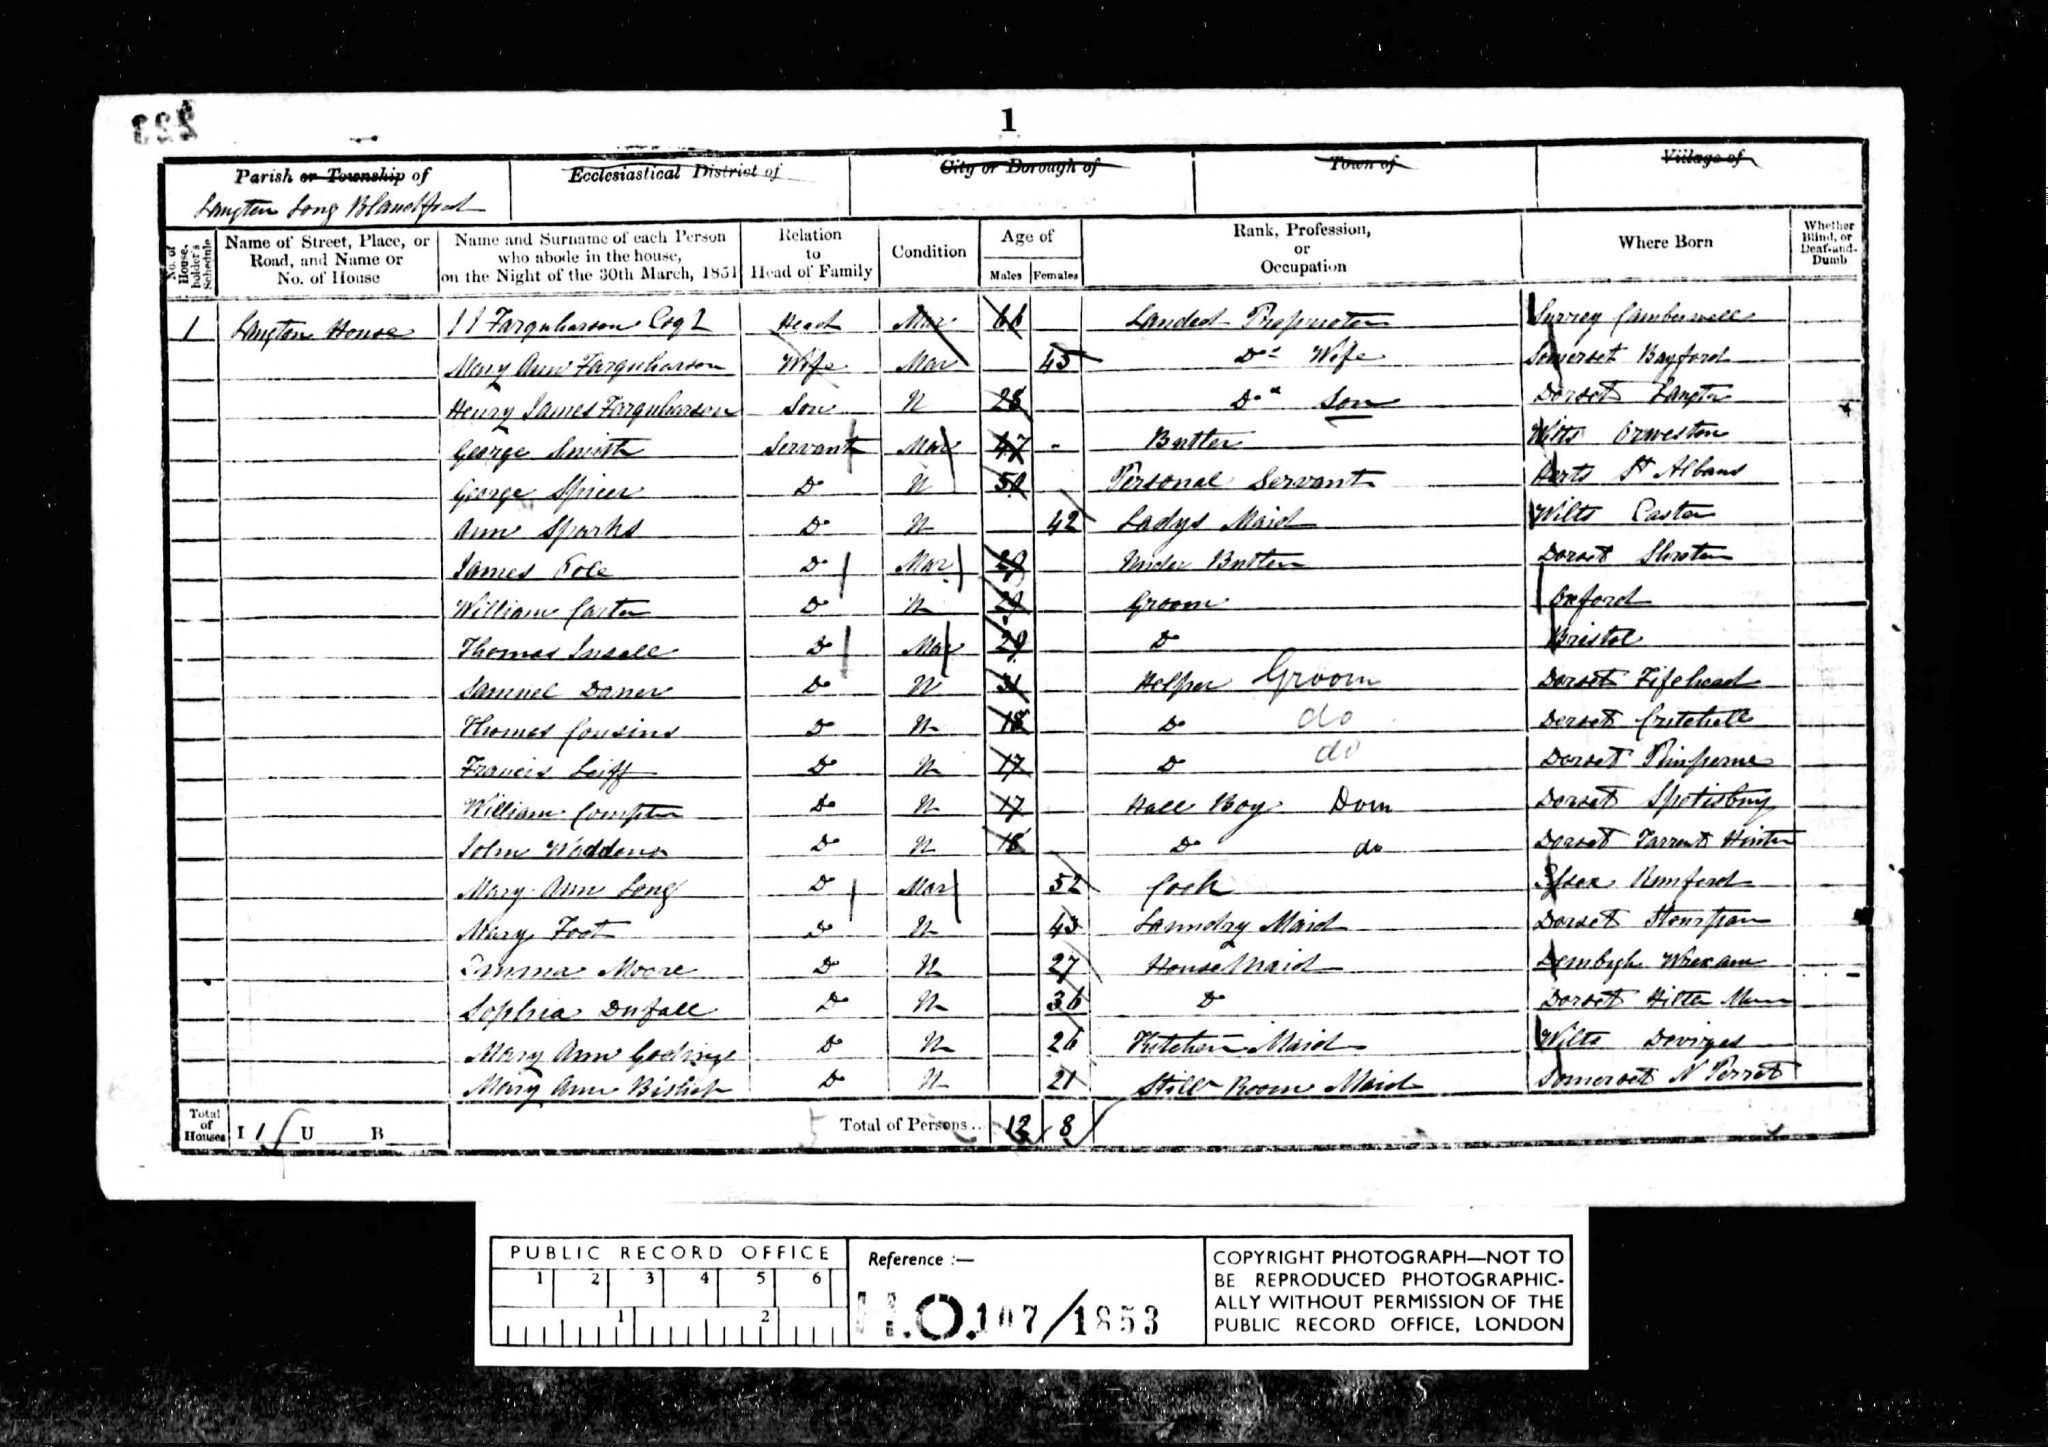 223
1
Parish or Township of Ecclesiastical District of City or Borough of Town of Village of
Langton Long Blandford
No. of House-holder's Schedule Name of Street, Place, or Road, and Name or No. of House Name and Surname of each Person who abode in the house, on the Night of the 30th March, 1851 Relation to Head of Family Condition Age of Males Females Rank, Profession, or Occupation Where Born Whether Blind, or Deaf-and-Dumb
1 Langton House J J Farquharson Esqr Head Mar 66 Landed Proprietor Surrey Camberwell
Mary Ann Farquharson Wife Mar 45 Do Wife Somerset Bayford
Henry James Farquharson Son N 28 Do Son Dorset Langton
George Smith Servant Mar 47 - Butler Wilts
George Spicer D N Personal Servant Herts St Albans
Ann Sparks D N 42 Ladys Maid Wilts
James Cole D Mar 29 Under Butler Dorset
William Carter D N 29 Groom Oxford
Thomas Insall D Mar 29 D Bristol
Samuel D N 31 Helper Groom Dorset Fifehead
Thomas Cousins D N 18 D do Dorset Critchell
Francis D N 17 D do Dorset Pimperne
William Compton D N 17 Hall Boy Dom Dorset Spetisbury
John D N 18 D do Dorset Tarrent Hinton
Mary Ann Long D Mar 52 Cook Essex Rumford
Mary Foot D N 43 Laundry Maid Dorset
Emma Moore D N 27 House Maid Denbigh Wrexam
Sophia Dufall D N 36 D Dorset Hilton
Mary Ann D N 26 Kitchen Maid Wilts Devizes
Mary Ann Bishop D N 21 Still Room Maid Somerset N Perret
Total of Houses I 1 U B 5 Total of Persons... 12 8
PUBLIC RECORD OFFICE
1 2 3 4 5 6
1 2
Reference :—
H.O. 107/1853
COPYRIGHT PHOTOGRAPH—NOT TO
BE REPRODUCED PHOTOGRAPHIC-
ALLY WITHOUT PERMISSION OF THE
PUBLIC RECORD OFFICE, LONDON